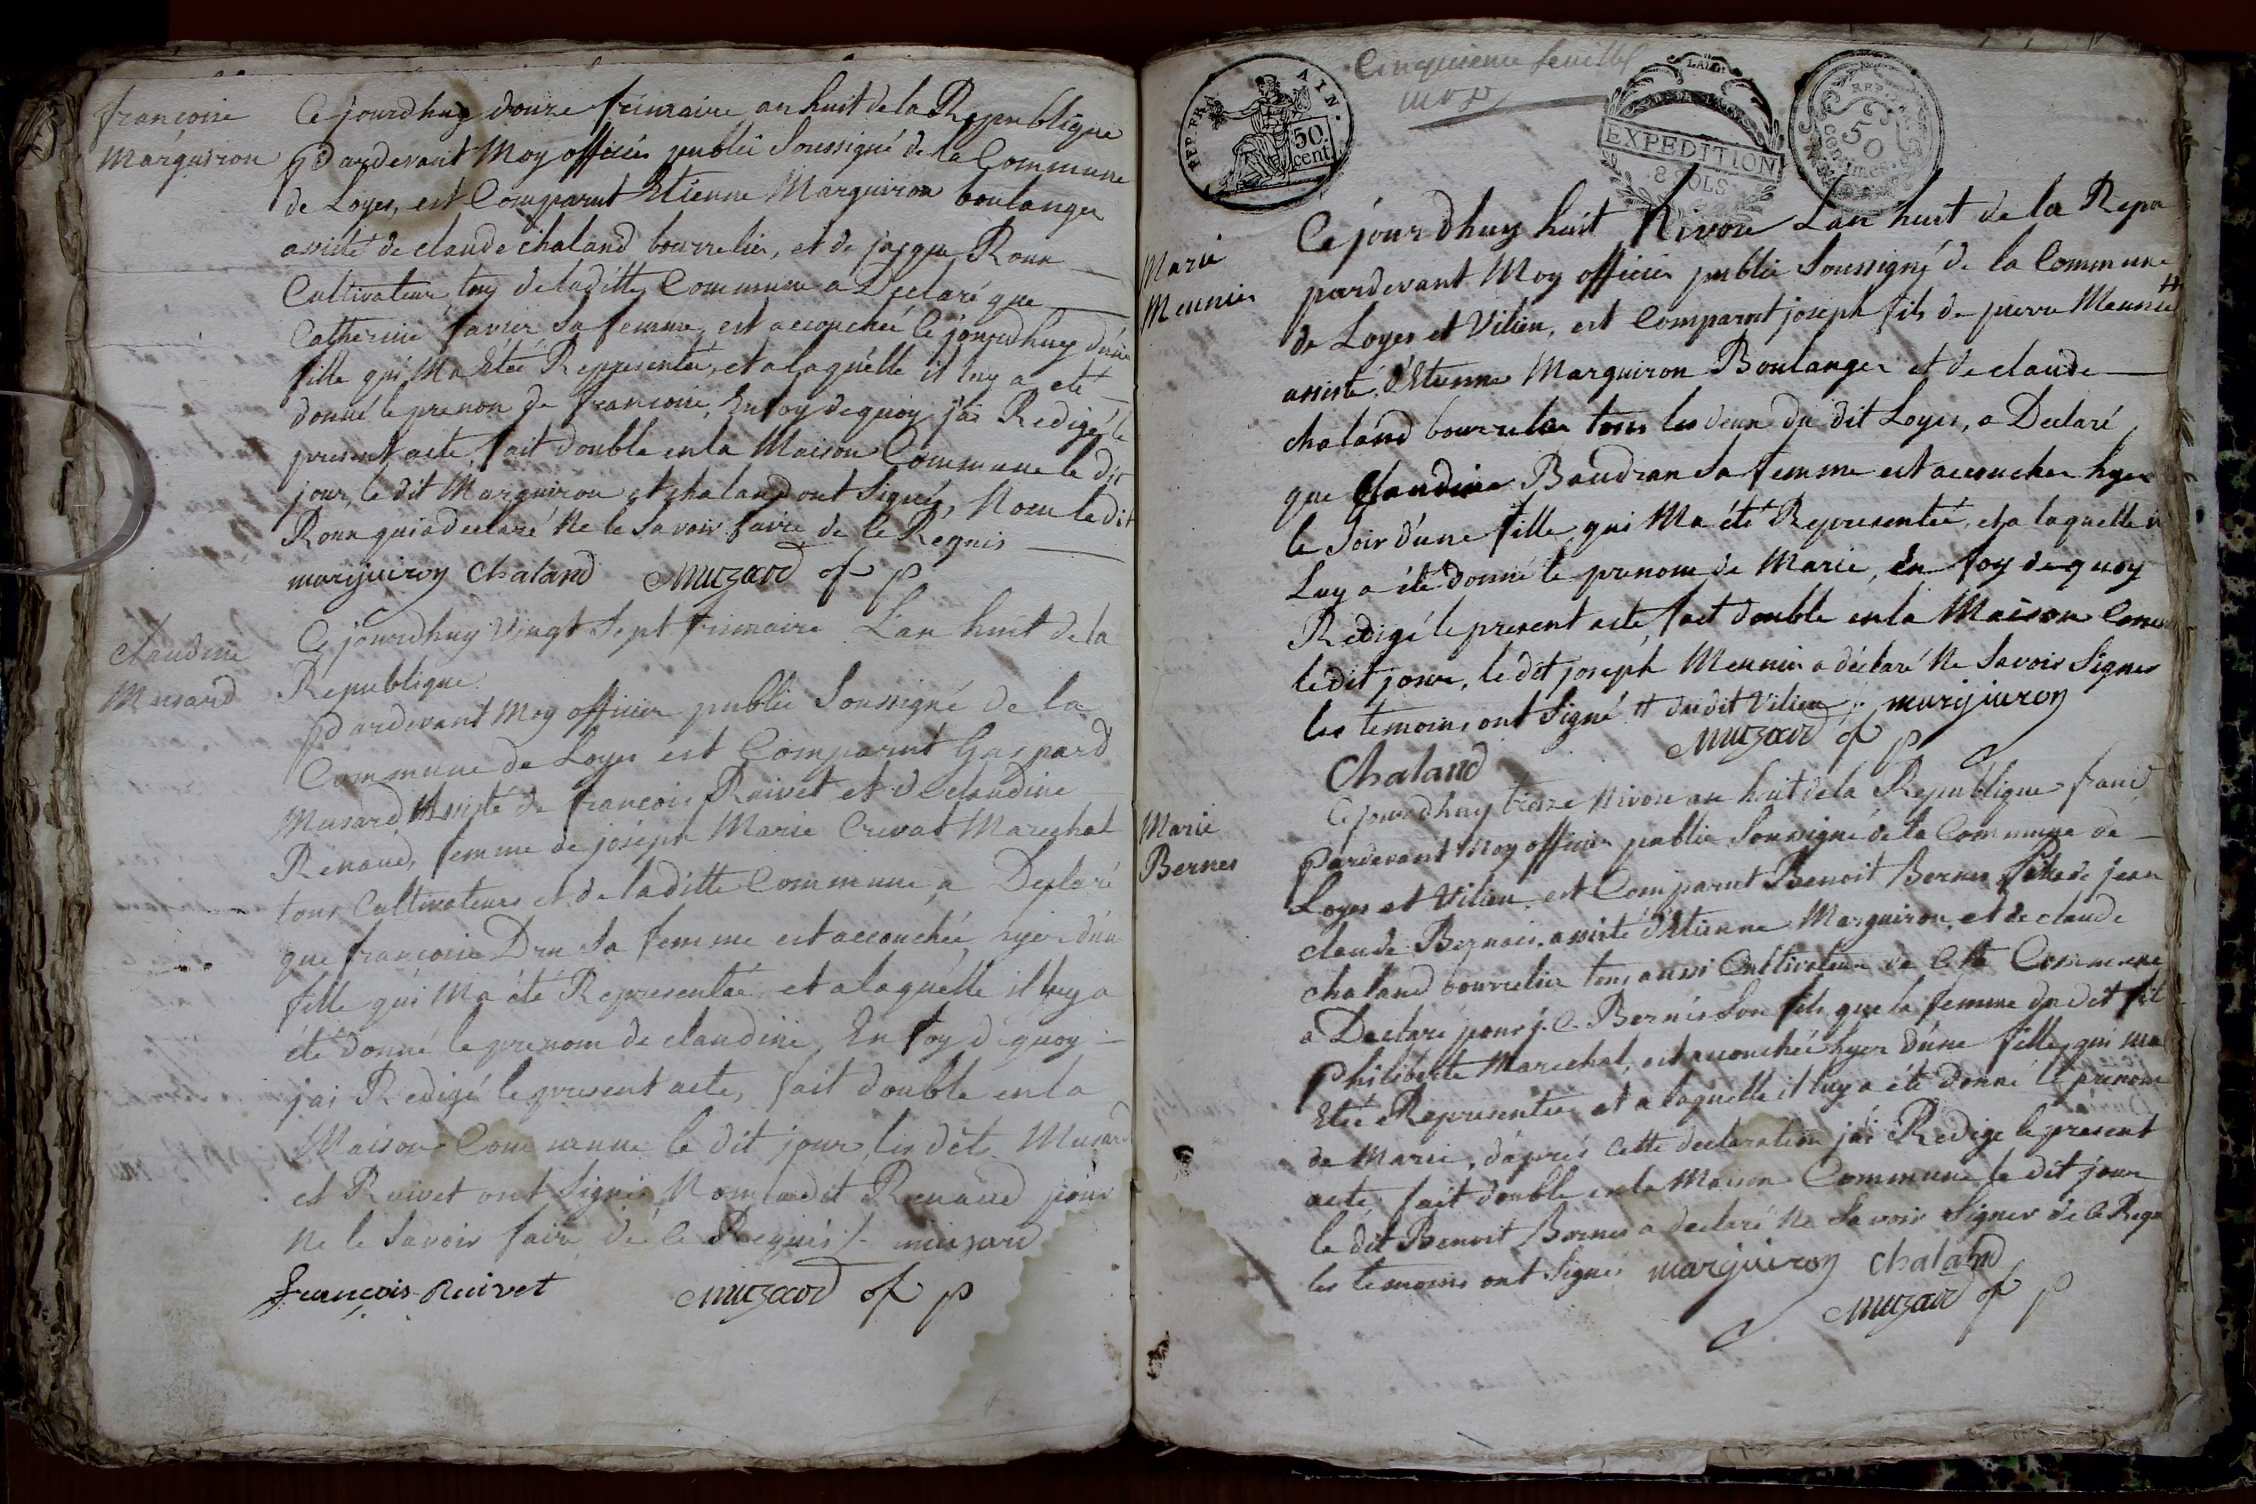 françoise
Marguiron
Ce jourdhuy douze frimaire an huit de la Republique
Pardevant Moy officier public Soussigné de la Commune
de Loyes, est Comparut Etienne Marguiron boulanger
assisté de claude chaland bourrelier, et de jacque Roux
Cultivateur tous de laditte Commune a Declaré que
Catherine favier Sa femme est accouchée Ce jourdhuy d'une
fille qui Ma Eté Representée, et a laquelle il luy a eté
donné le prenom de francoise, En foy de quoy j'ai Redigé le
present acte, fait double en la Maison Commune le dit
jour, le dit Marguiron et chaland ont Signés, Non le dit
Roux qui a declaré Ne le Savoir faire de ce Requis
marguiron chaland Muzard of p
claudine
Musard
Ce jourdhuy Vingt Sept frimaire L'an huit de la
Republique
Pardevant Moy officier public Soussigné de la
Commune de Loyes est Comparut Gaspard
Musard, Assisté de francois Ruivet et de claudine
Renaud, femme de joseph Marie Crevat Marechal
tous Cultivateurs et de laditte Commune, a Declaré
que francoise Dru Sa femme est accouchée hyer d'une
fille qui Ma été Representée et a laquelle il luy a
été donné le prenom de claudine, En foy de quoy
j'ai Redigé le present acte, fait double en la
Maison Commune le dit jour, les dits Musard
et Ruivet ont Signés, Non laditte Renaud pour
Ne le Savoir faire de Ce Requis /. muzard
françois Ruivet Muzard of p
Cinquieme feuillet
REP. FRA. AIN.
50 cent.
EXPEDITION
8 SOLS
REP. FRA.
50
Centimes
Marie
Meunier
Ce jourdhuy huit Nivose L'an huit de la Repu
pardevant Moy officier public Soussigné de la Commune
de Loyes et Vilieu, est Comparut joseph fils de pierre Meunier #
assisté d'Etienne Marguiron Boulanger et de claude
chaland bourrelier tous les deux du dit Loyes, a Declaré
que Claudine Baudran Sa femme est accouchée hyer
le Soir d'une fille qui Ma été Representée, et a laquelle il
Luy a été donné le prenom de Marie, En foy de quoy
Redigé le present acte, fait double en la Maison Comm
le dit jour, le dit joseph Meunier a déclaré Ne Savoir Signer
les temoins ont Signé # du dit Vilieu ./. marguiron
Chaland Muzard of p
Marie
Bernes
Ce jourdhuy treize Nivose an huit de la République franc
Pardevant Moy officier public Soussigné de la Commune de
Loyes et Vilieu, est Comparut Benoit Bernes fils de jean
claude Bernais, assisté d'Etienne Marguiron, et de claude
chaland bourrelier tous aussi Cultivateur de Cette Commune
a Declare pour j. C. Bernés Son fils que la femme du dit fils
Philiberte Marechal, est accouchée hyer d'une fille, qui ma
Eté Representée et a laquelle il luy a été donné le prenom
de Marie, d'après Cette declaration j'ai Redigé le present
acte, fait double en la Maison Commune le dit jour
le dit Benoit Bernes a declaré Ne Savoir Signer de ce Requ
les temoins ont Signés marguiron chaland
Muzard of p